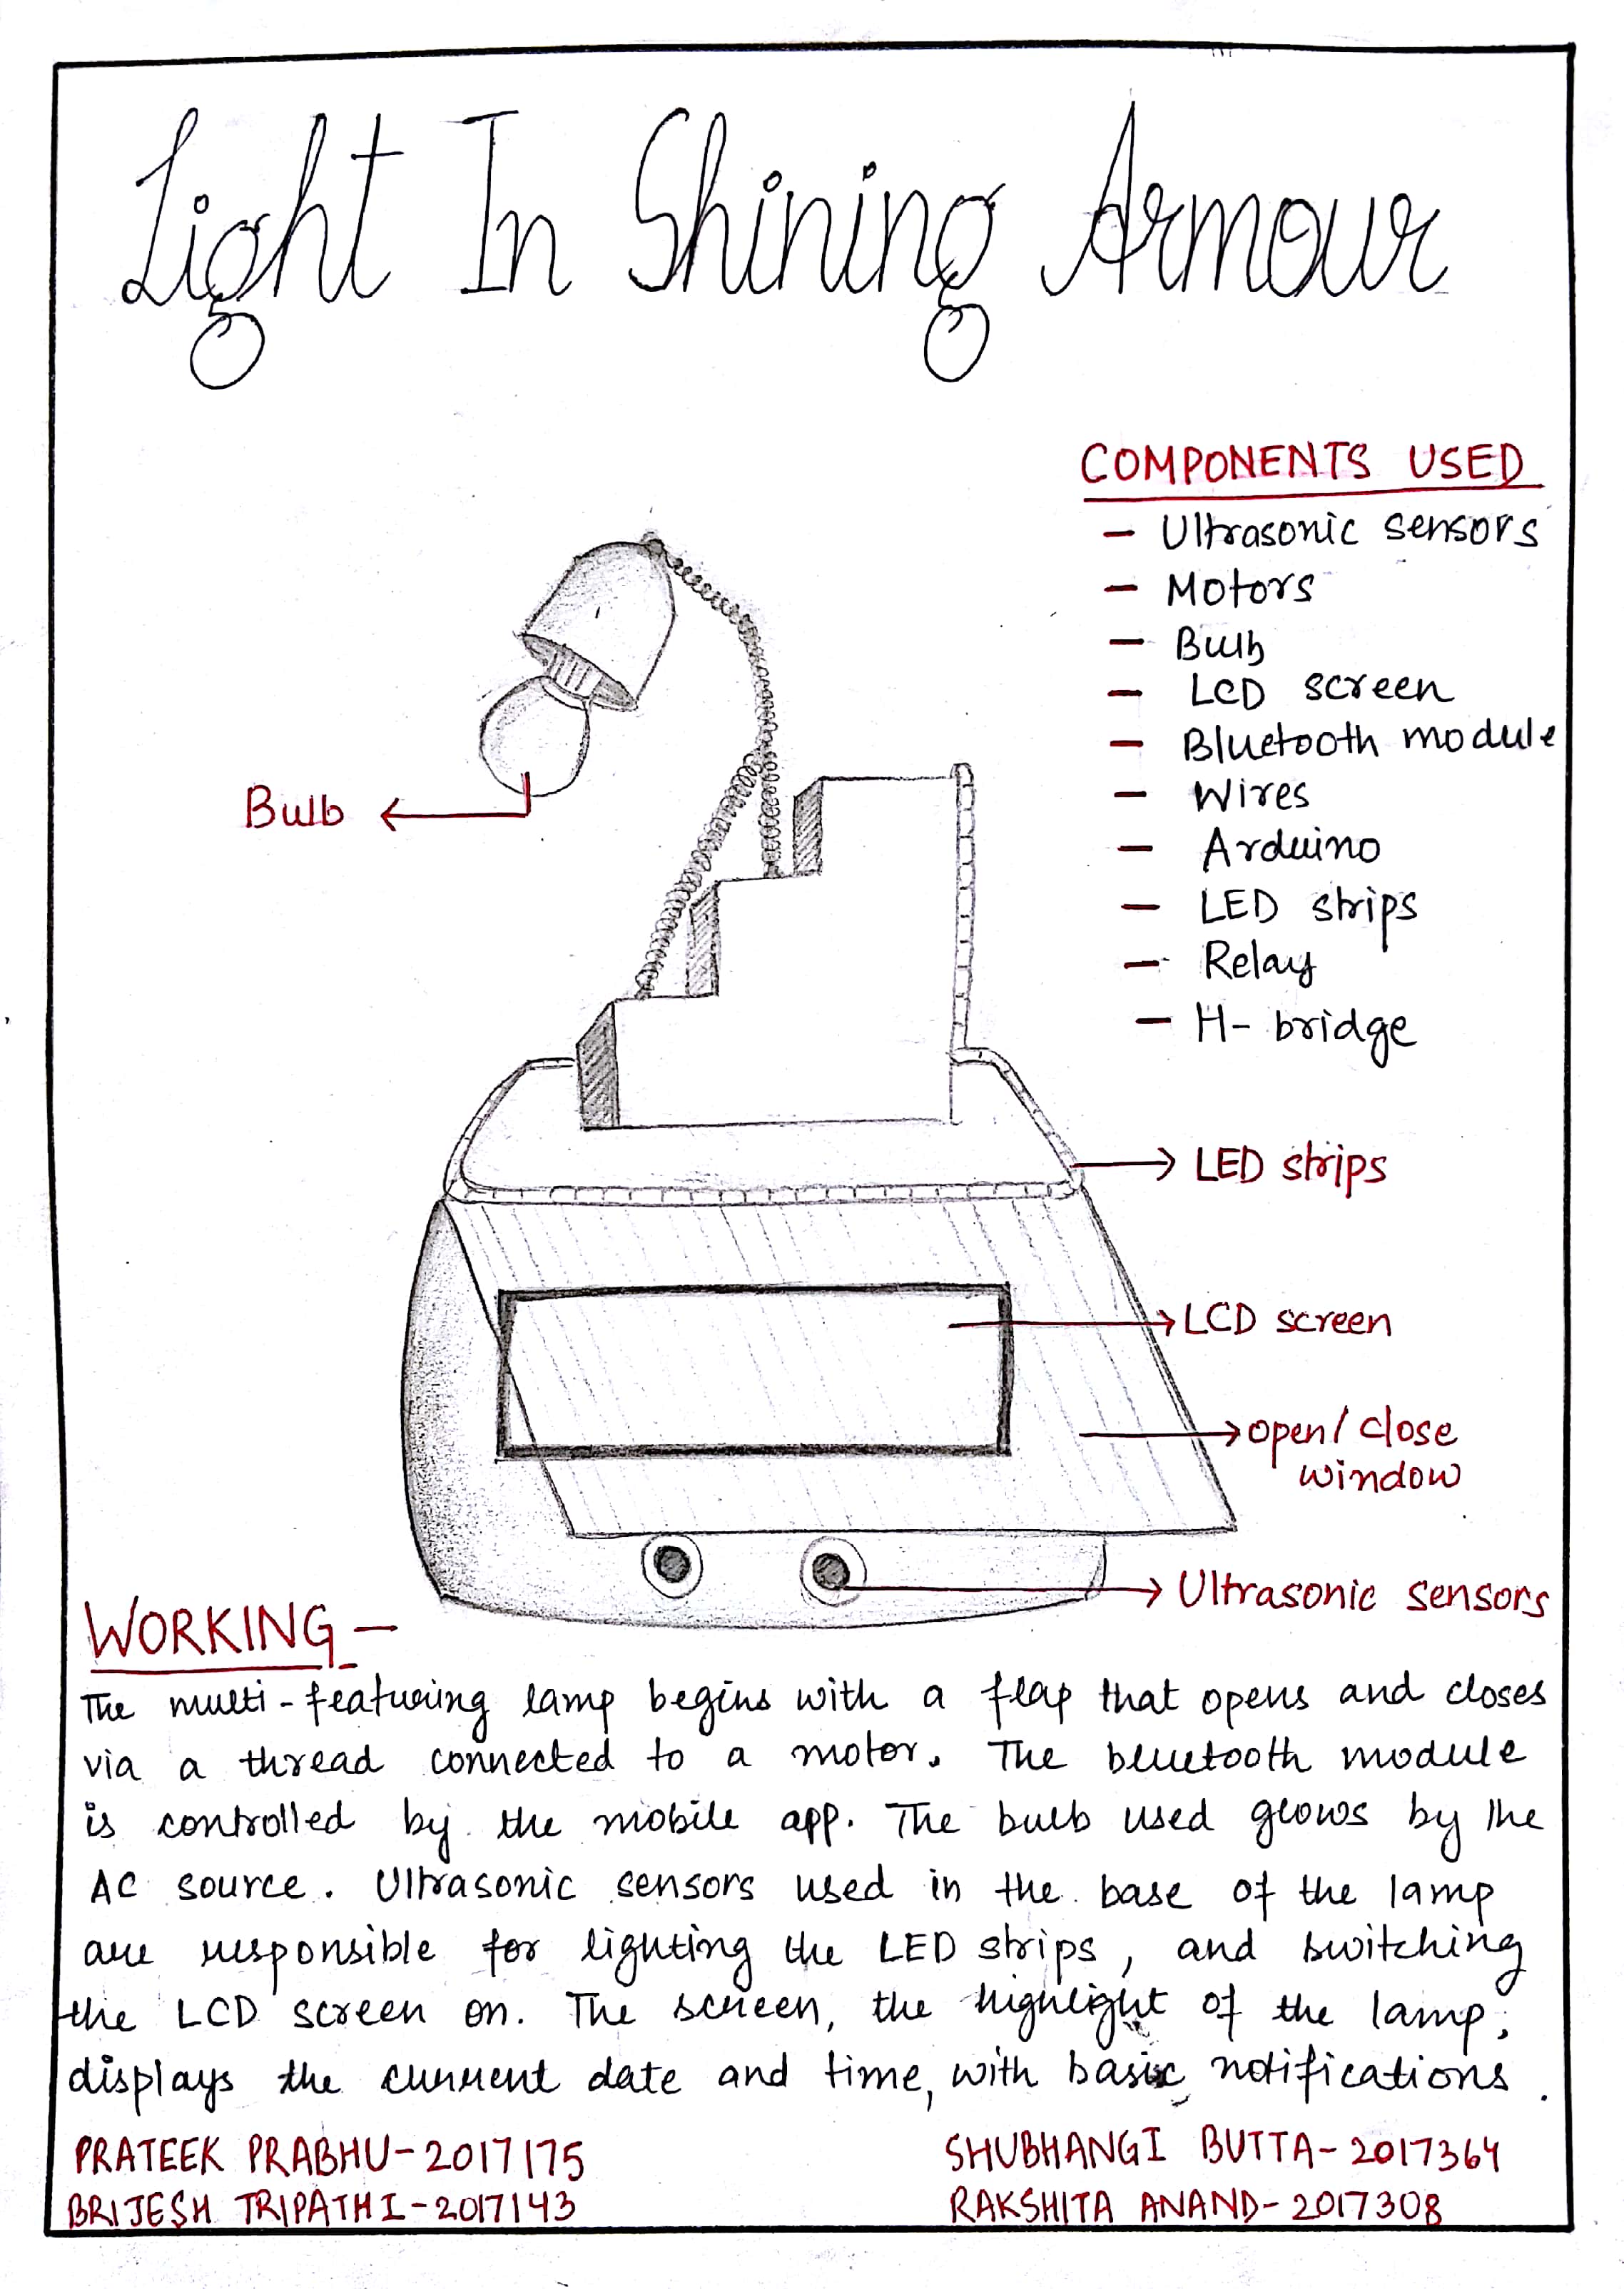 Light In Shining Armour
COMPONENTS USED
- Ultrasonic sensors
- Motors
- Bulb
- LCD screen
- Bluetooth module
- Wires
- Arduino
- LED strips
- Relay
- H-bridge
Bulb
LED strips
LCD screen
open/close
window
Ultrasonic sensors
WORKING -
The multi-featuring lamp begins with a flap that opens and closes
via a thread connected to a motor. The bluetooth module
is controlled by the mobile app. The bulb used glows by the
AC source. Ultrasonic sensors used in the base of the lamp
are responsible for lighting the LED strips, and switching
the LCD screen on. The screen, the highlight of the lamp,
displays the current date and time, with basic notifications.
PRATEEK PRABHU-2017175
BRIJESH TRIPATHI-2017143
SHUBHANGI BUTTA-2017364
RAKSHITA ANAND-2017308